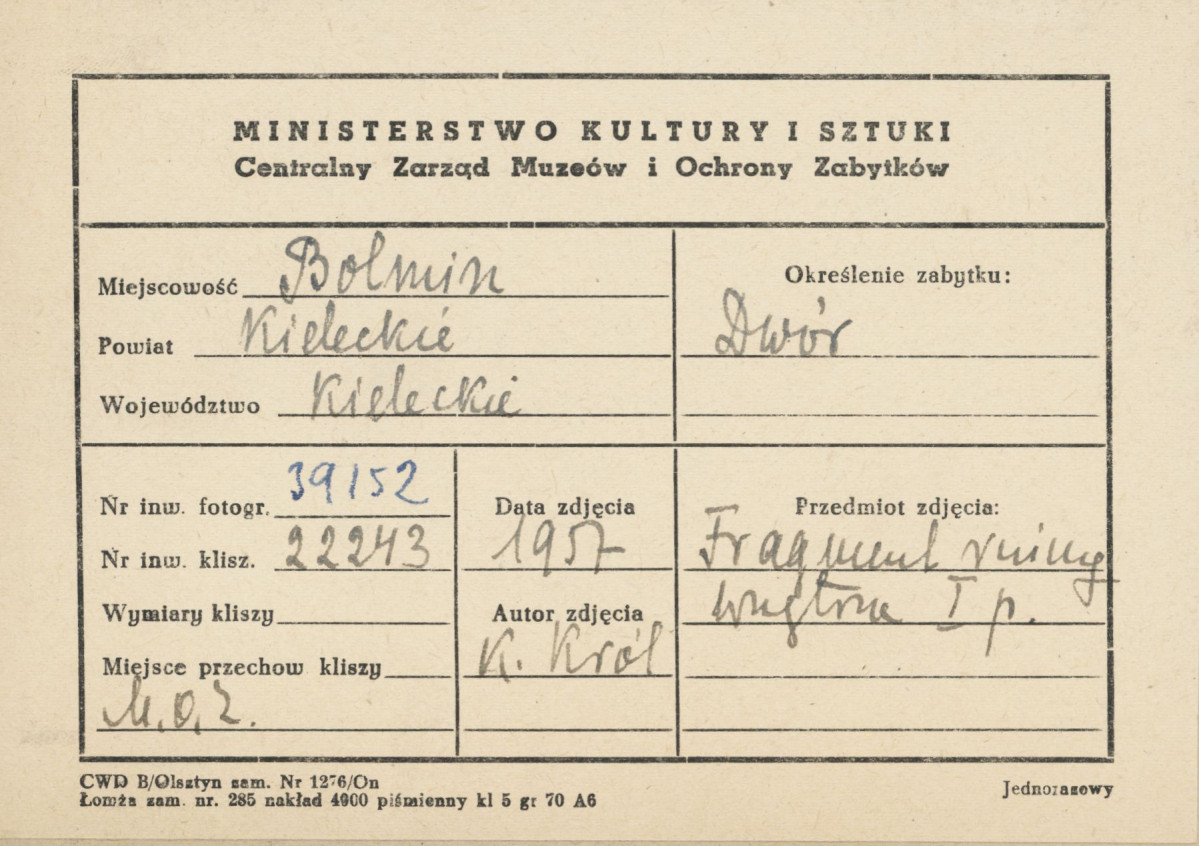 MINISTERSTWO KULTURY I SZTUKI
Centralny Zarząd Muzeów i Ochrony Zabytków
Miejscowość Bolmin
Powiat Kieleckie
Województwo Kieleckie
Określenie zabytku:
Dwór
Nr inw. fotogr. 39152
Nr inw. klisz. 22243
Wymiary kliszy
Miejsce przechow kliszy
M.O.Z.
Data zdjęcia
1957
Autor zdjęcia
K. Król
Przedmiot zdjęcia:
Fragment ruiny
I p.
CWD B/Olsztyn zam. Nr 1276/On
Łomża zam. nr. 285 nakład 4000 piśmienny kl 5 gr 70 A6
Jednorazowy